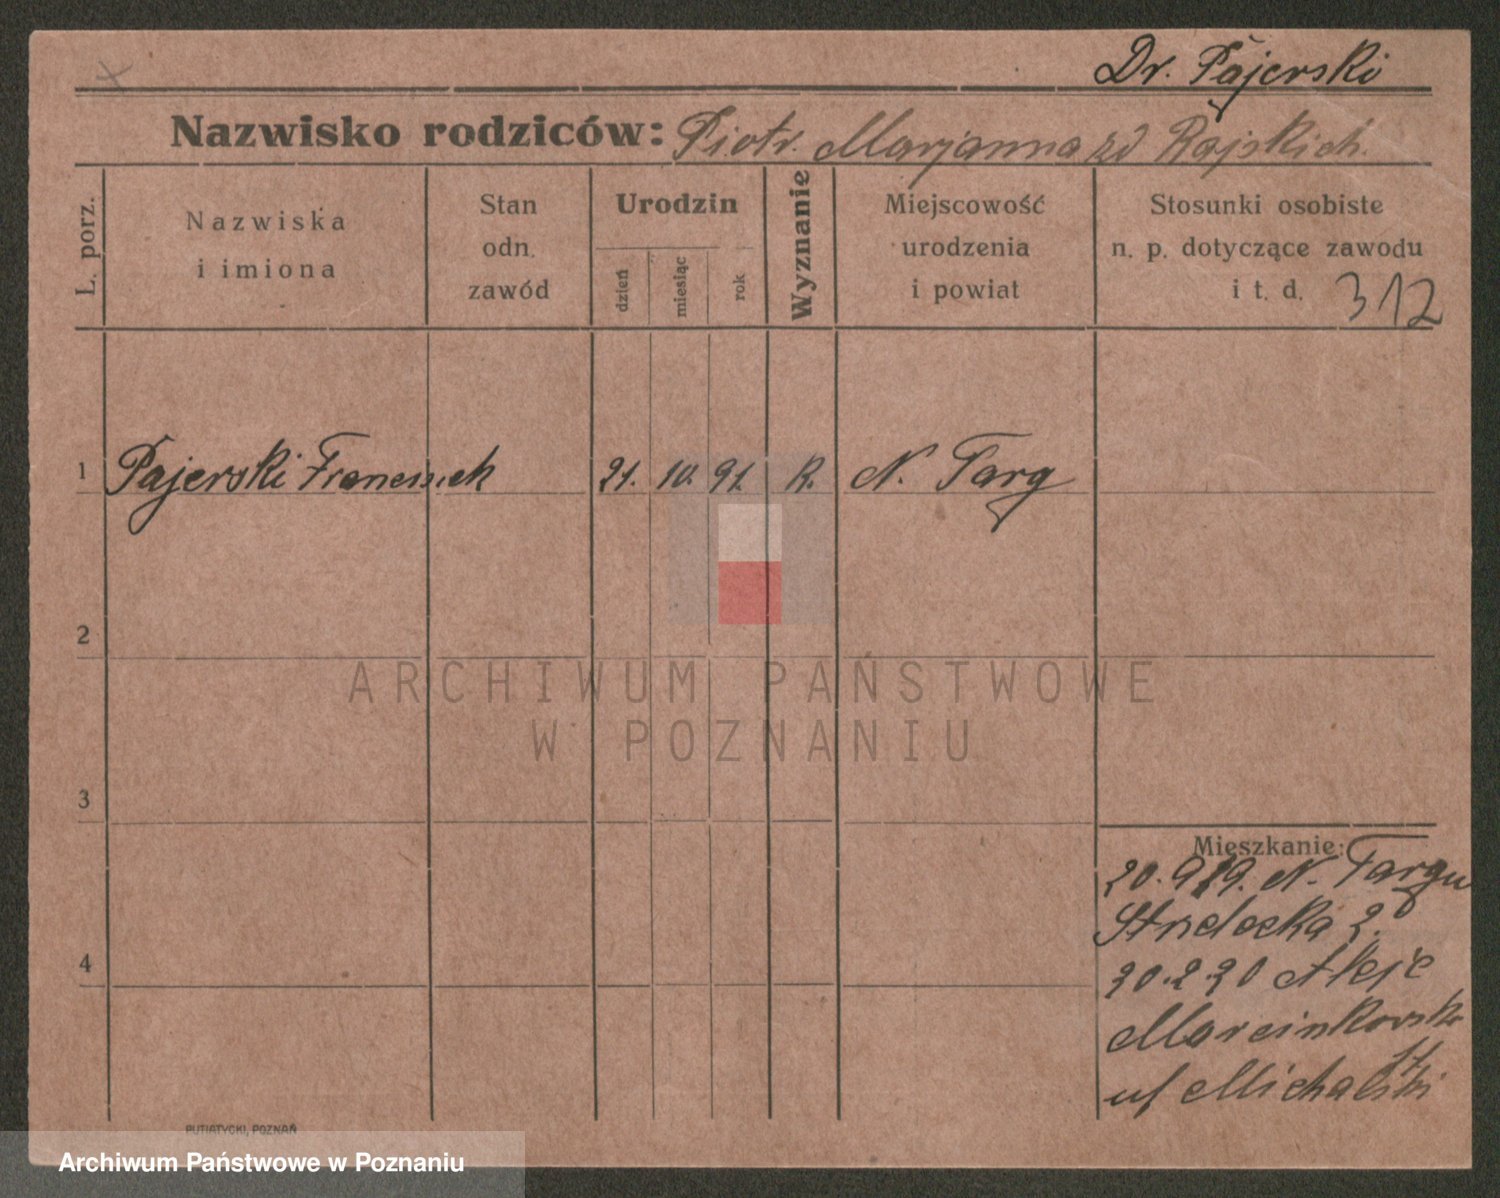 Dr. Pajerski
Nazwisko rodziców: Piotr. Marjanna zd Rajskich.
L. porz.
Nazwiska
i imiona
Stan
odn.
zawód
Urodzin
dzień
miesiąc
rok
Wyznanie
Miejscowość
urodzenia
i powiat
Stosunki osobiste
n. p. dotyczące zawodu
i t. d. 312
1 Pajerski Franciszek 21. 10. 91. R. N. Targ
2
3
4
Mieszkanie:
20. 9 19. N. Targu
Strzelecka 2.
20.2.20 Aleje
Marcinkowsk
11
uf Michalski
PUTIATYCKI, POZNAŃ
ARCHIWUM PAŃSTWOWE
W POZNANIU
Archiwum Państwowe w Poznaniu